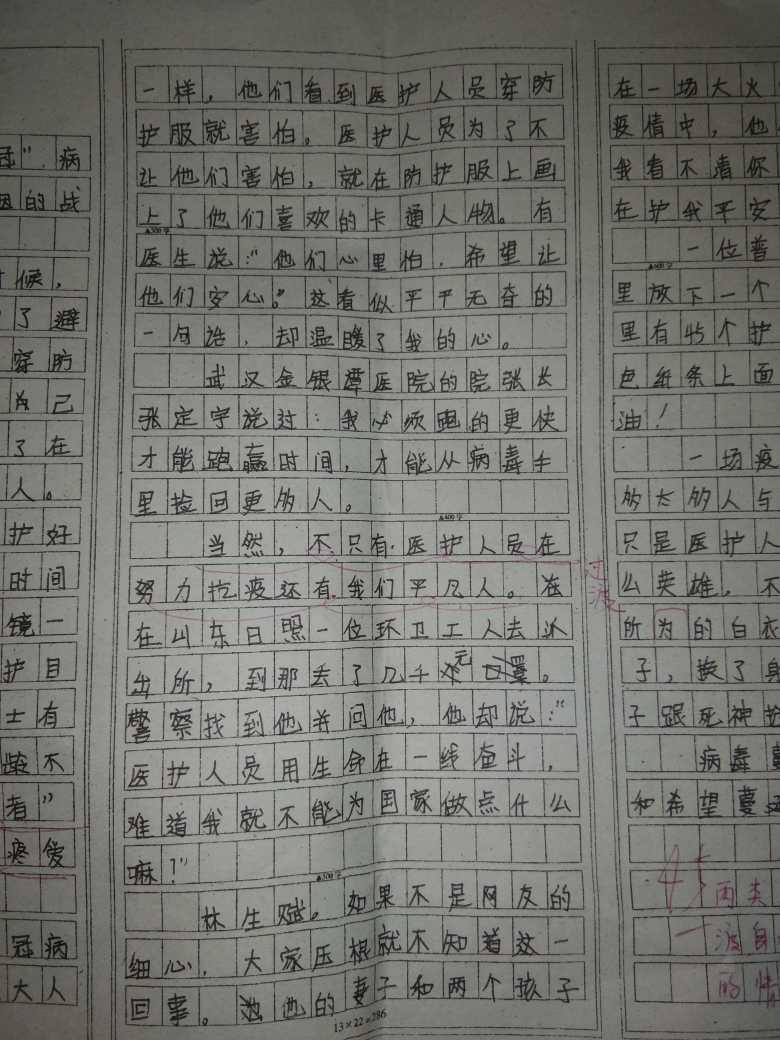 冠"病
的战
候，
了避
穿防
为己
了在
人。
护好
时间
镜一
护目
士有
龄不
者"
疼爱
冠病
大人
一样，他们看到医护人员穿防
护服就害怕。医护人员为了不
让他们害怕，就在防护服上画
上了他们喜欢的卡通人物。有
▲300字
医生说："他们心里怕，希望让
他们安心。"这看似平平无夺的
一句话，却温暖了我的心。
武汉金银潭医院的院张长
张定宇说过：我必须跑的更快
才能跑赢时间，才能从病毒手
里捡回更多人。
▲400字
当然，不只有医护人员在
努力抗疫还有我们平凡人。在
过渡
在山东日照一位环卫工人去派
出所，到那丢了几千元
警察找到他并问他，他却说："
医护人员用生命在一线奋斗，
难道我就不能为国家做点什么
嘛！"
▲500字
林生赋。如果不是网友的
细心，大家压根就不知道这一
回事。他的妻子和两个孩子
13×22=286
在一场大火
疫情中，他
我看不清你
在护我平安
一位普
▲800字
里放下一个
里有45个护
包纸条上面
油！
一场疫
多大多人与
只是医护人
么英雄，不
所为的白衣
子，换了身
子跟死神抢
病毒蔓
和希望蔓延
45
两类
一
渡自
的情